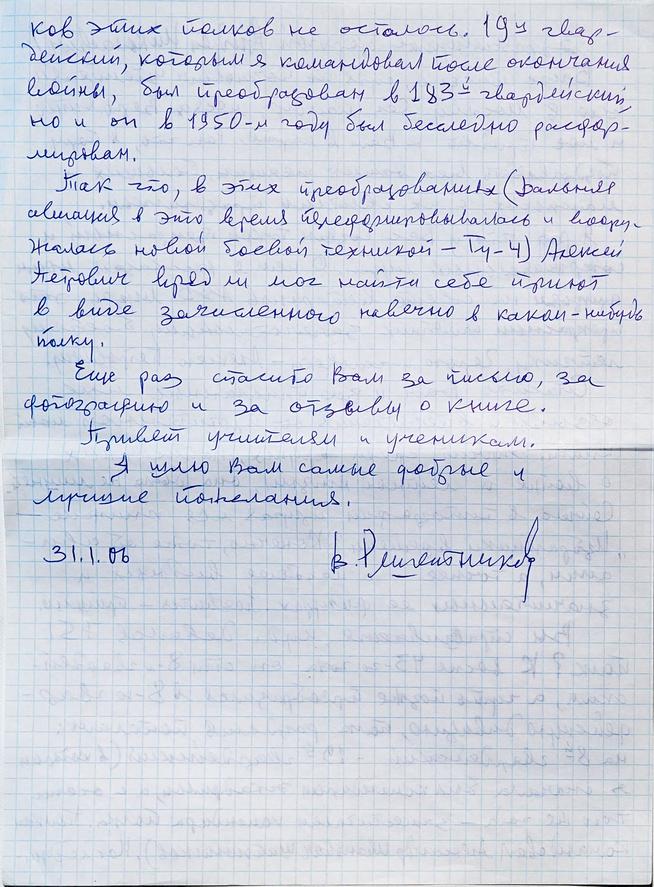 ков этих полков не осталось. 19й гвар-
дейский, которым я командовал после окончания
войны, был преобразован в 183й гвардейский,
но и он в 1950-м году был бесследно расфор-
мирован.
Так что, в этих преобразованиях (Дальняя
авиация в это время переформировывалась и воору-
жалась новой боевой техникой - Ту-4) Алексей
Петрович вряд ли мог найти себе приют
в виде зачисленного навечно в каком-нибудь
полку.
Еще раз спасибо Вам за письмо, за
фотографию и за отзывы о книге.
Привет учителям и ученикам.
Я шлю Вам самые добрые и
лучшие пожелания.
31.1.06 В. Решетников